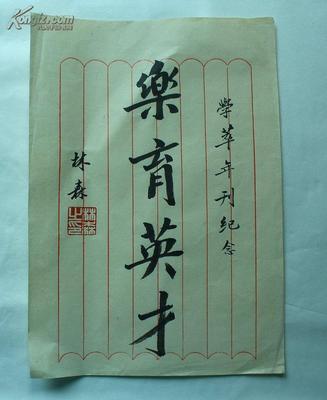 學萃年刊纪念
樂育英才
林森
林森之印
Kongfz.com